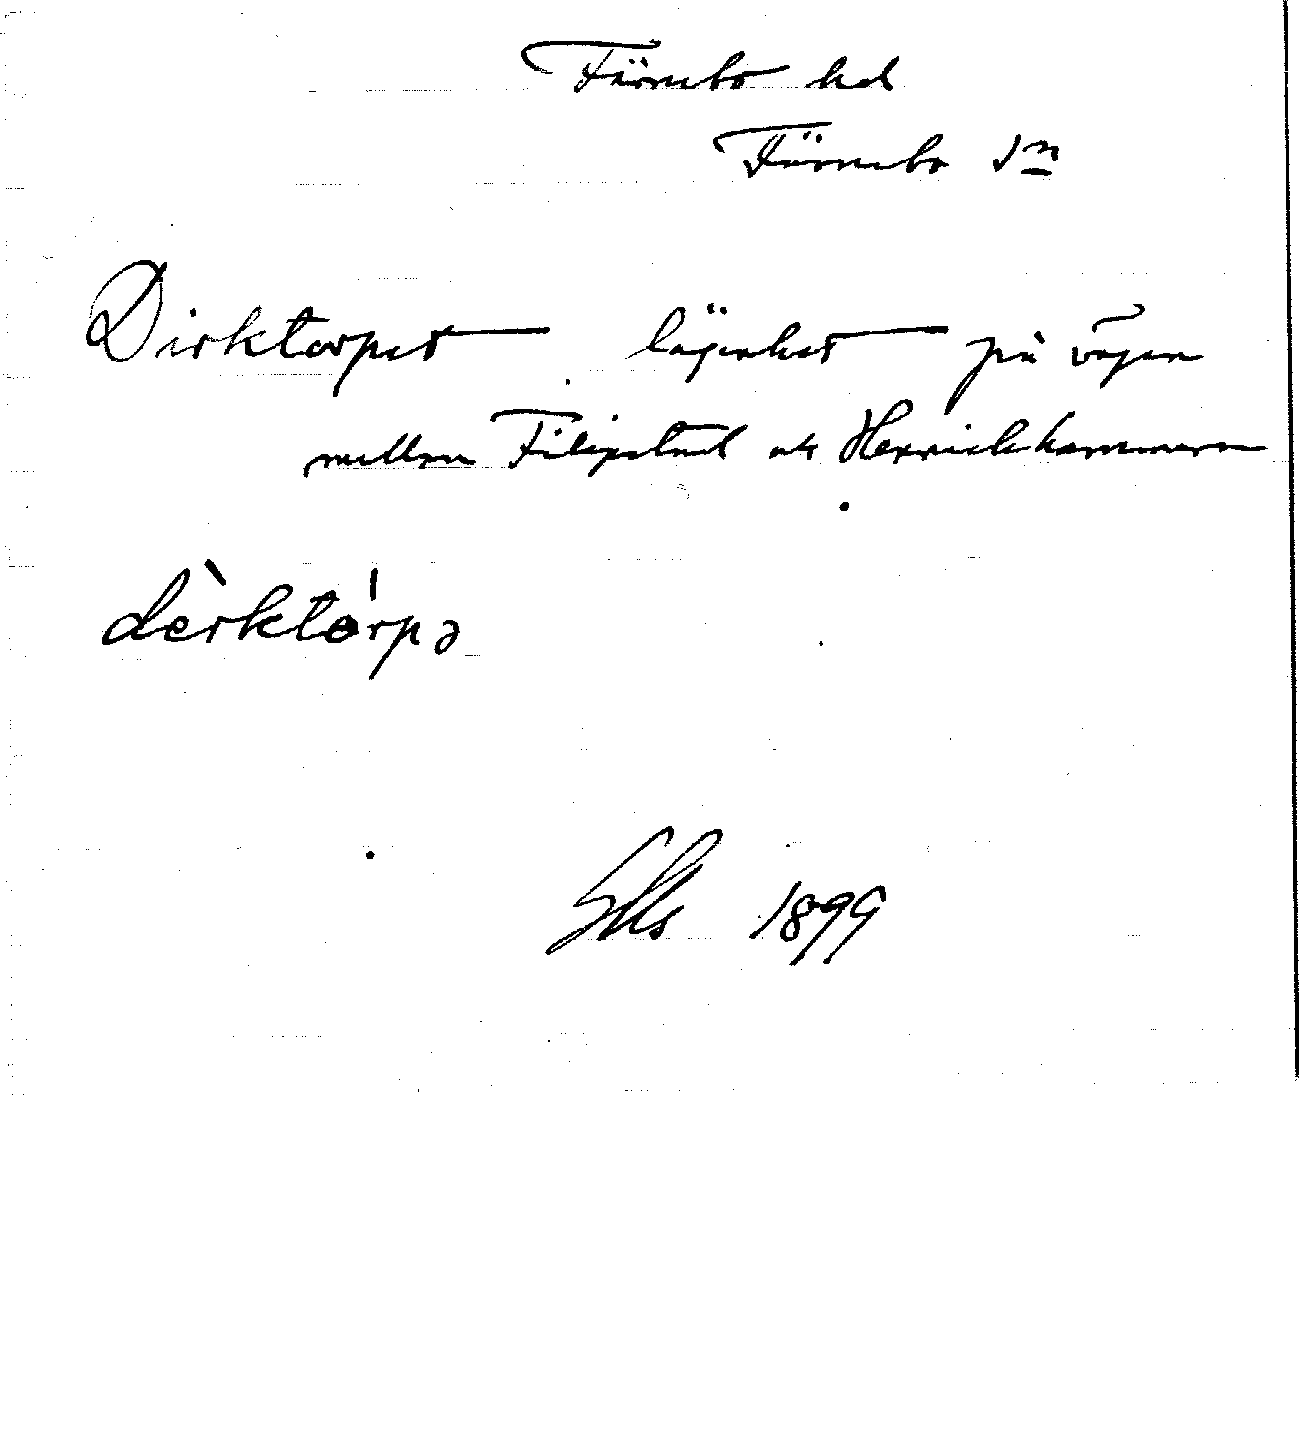 Färnebo hd
Färnebo sn
Dirktorpet lägenhet på vägen
mellan Filipstad och Herrickhammaren
dèrktórpə
1899